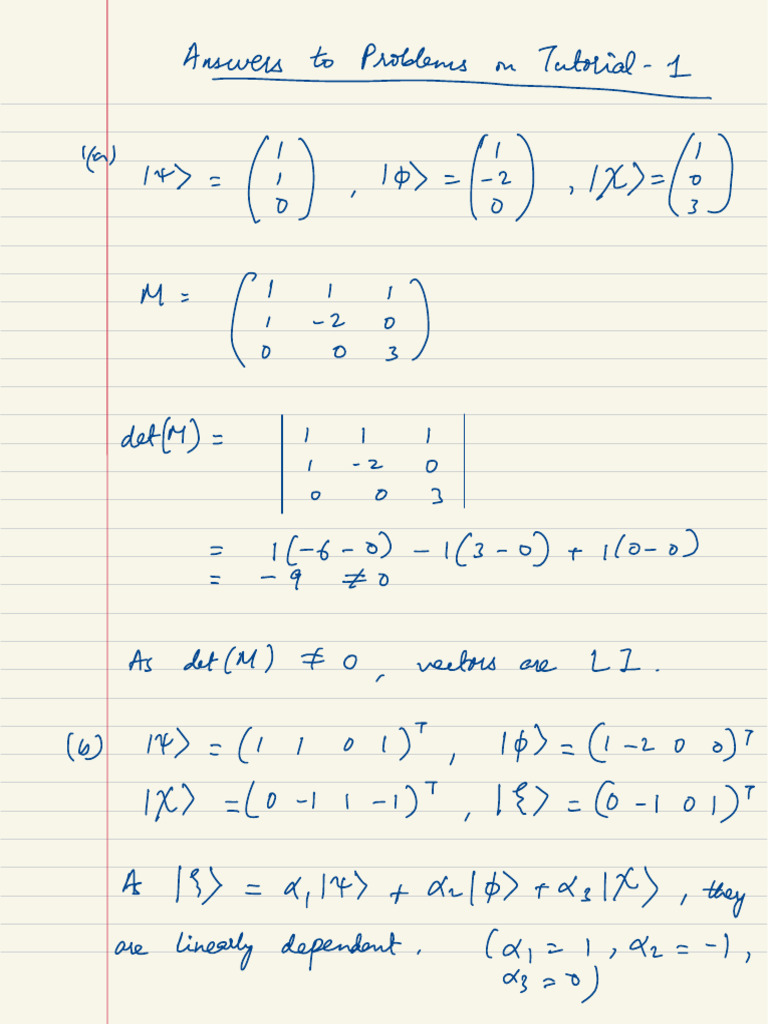 Answers to Problems on Tutorial - 1
1(a) |Ψ⟩ = (1 1 0), |ϕ⟩ = (1 -2 0), |χ⟩ = (1 0 3)
M = ( 1 1 1
1 -2 0
0 0 3 )
det(M) = | 1 1 1
1 -2 0
0 0 3 |
= 1(-6 - 0) - 1(3 - 0) + 1(0 - 0)
= -9 ≠ 0
As det(M) ≠ 0, vectors are LI.
(b) |Ψ⟩ = (1 1 0 1)ᵀ, |ϕ⟩ = (1 -2 0 0)ᵀ
|χ⟩ = (0 -1 1 -1)ᵀ, |ξ⟩ = (0 -1 0 1)ᵀ
As |ξ⟩ = α₁|Ψ⟩ + α₂|ϕ⟩ + α₃|χ⟩, they
are linearly dependent. (α₁ = 1, α₂ = -1,
α₃ = 0)